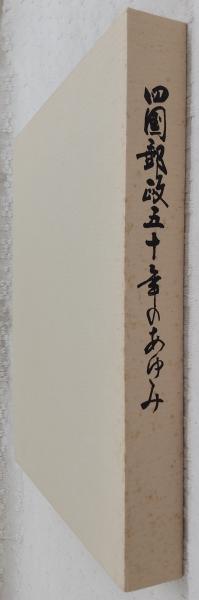 四國郵政五十年のあゆみ